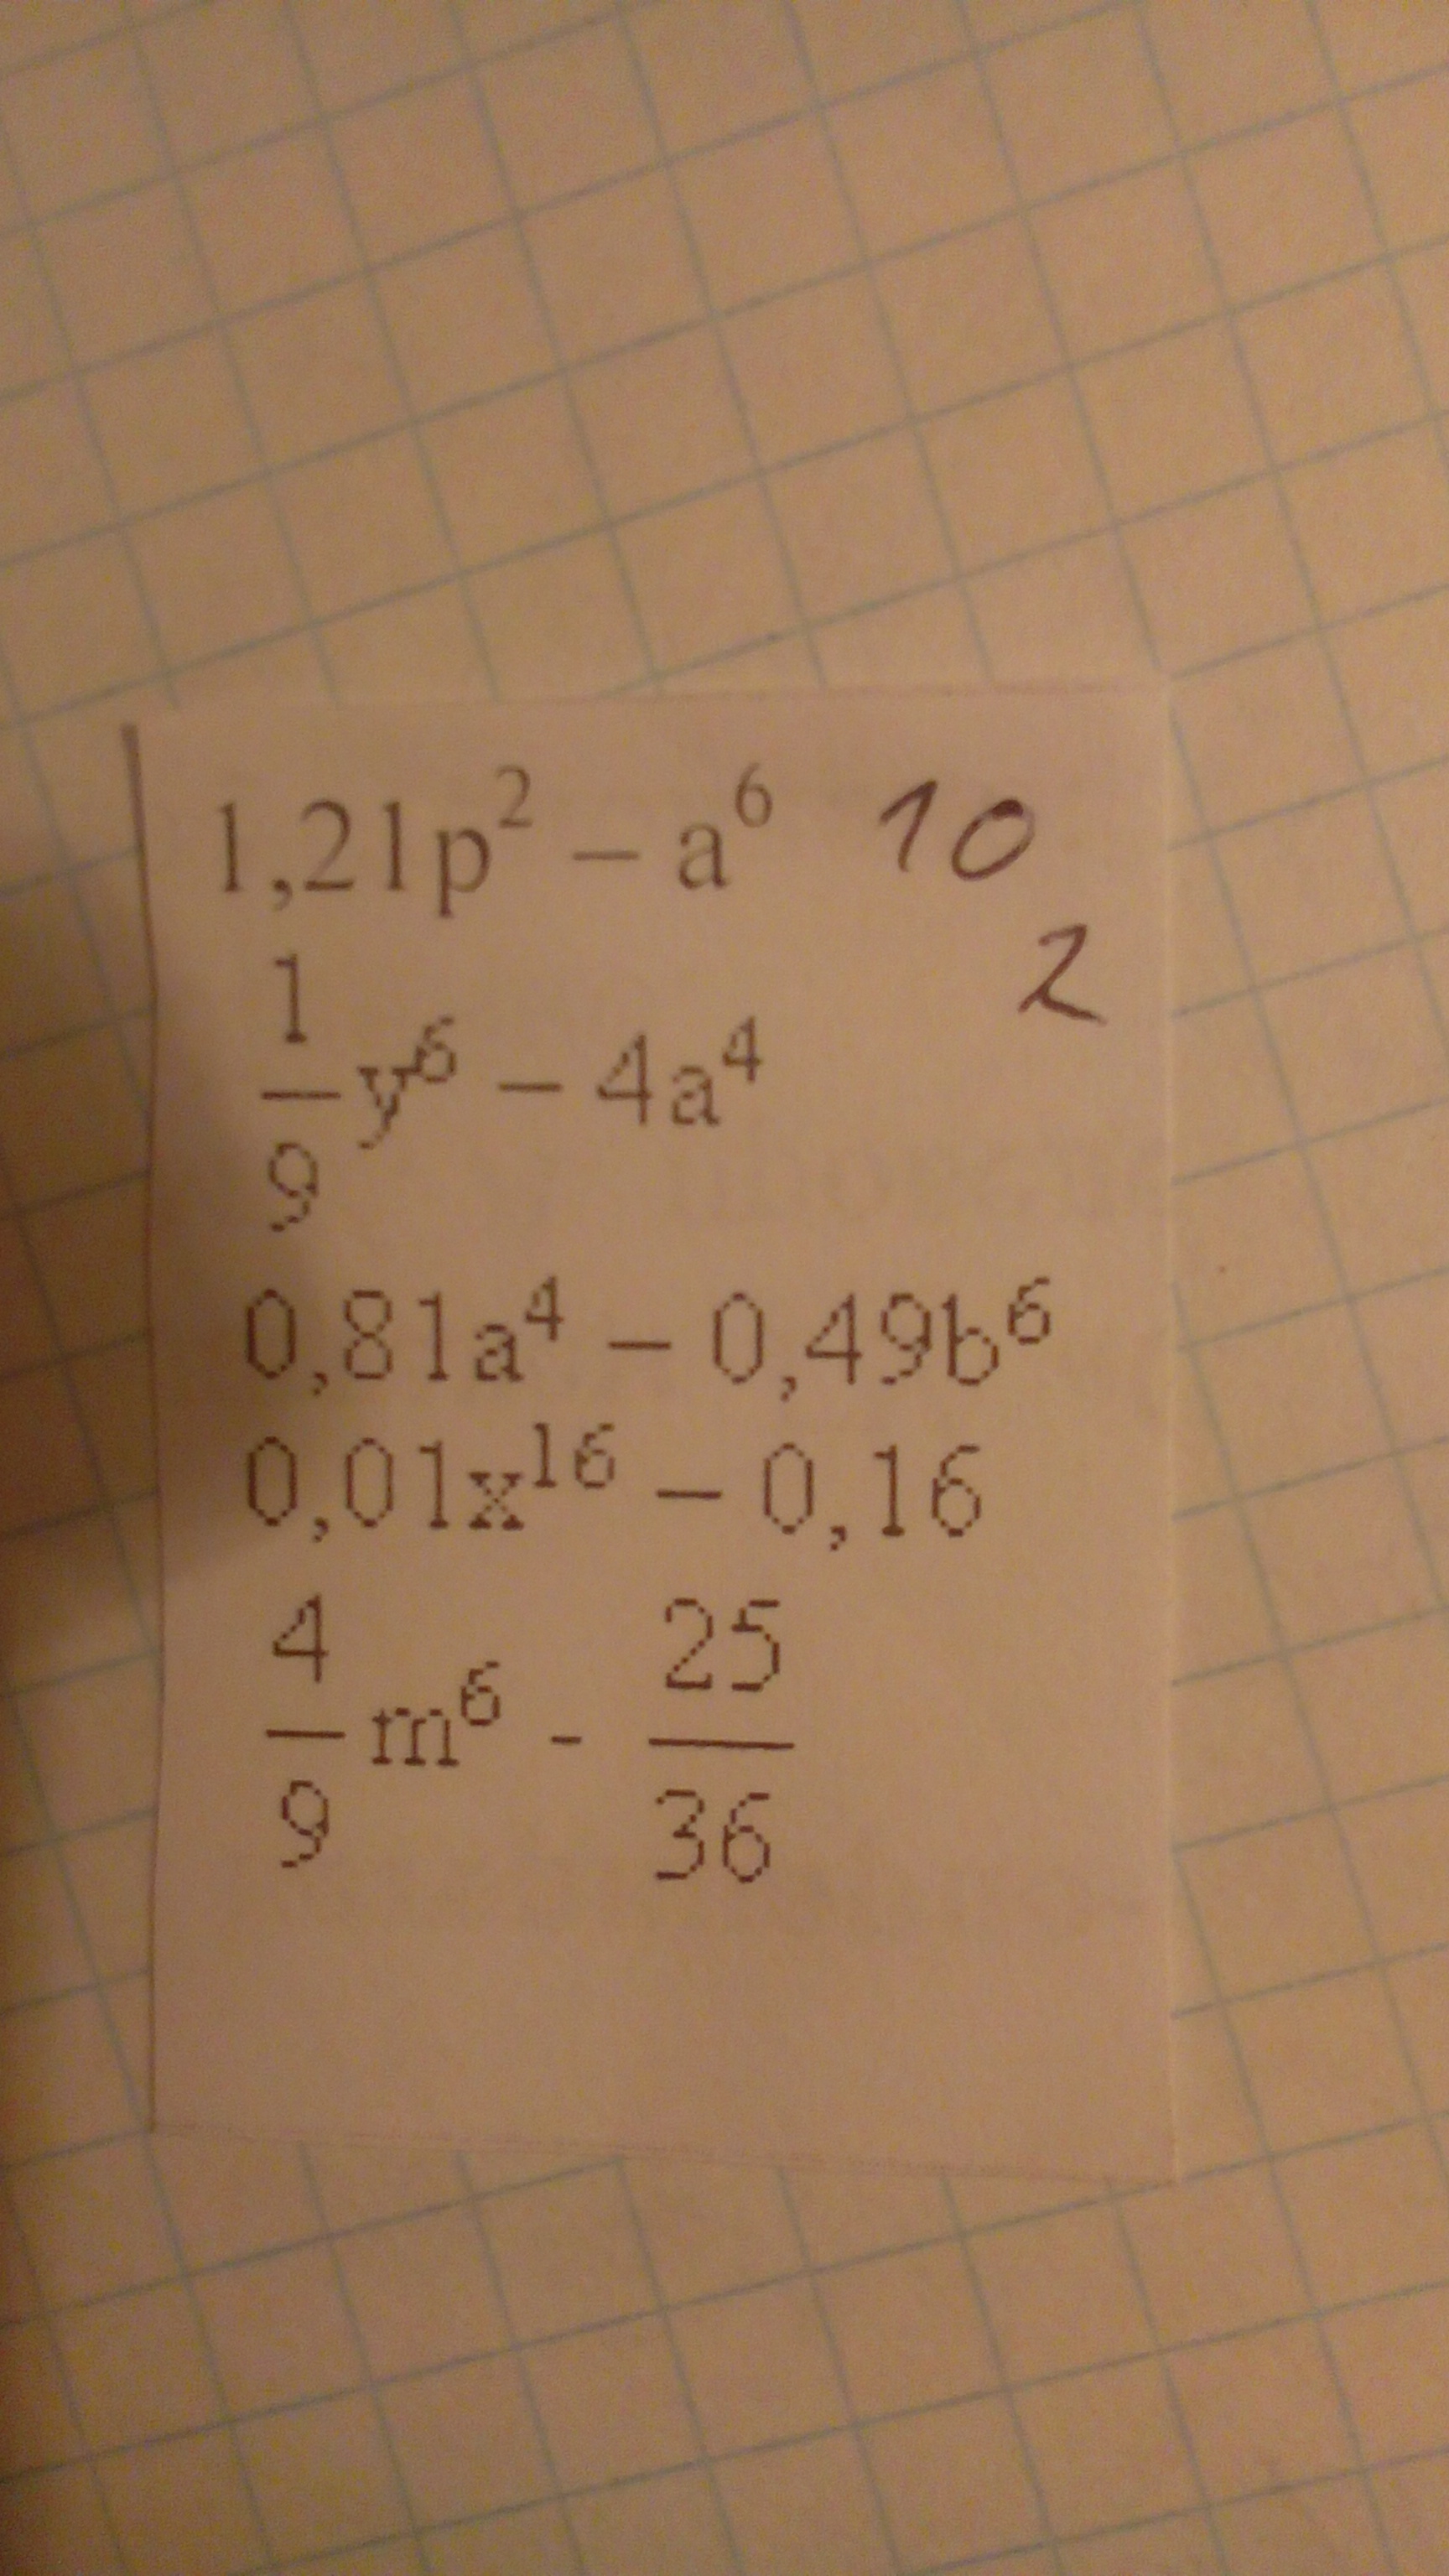 1,21p² – a⁶ 10
2
1/9 y⁶ – 4a⁴
0,81a⁴ – 0,49b⁶
0,01x¹⁶ – 0,16
4/9 m⁶ - 25/36